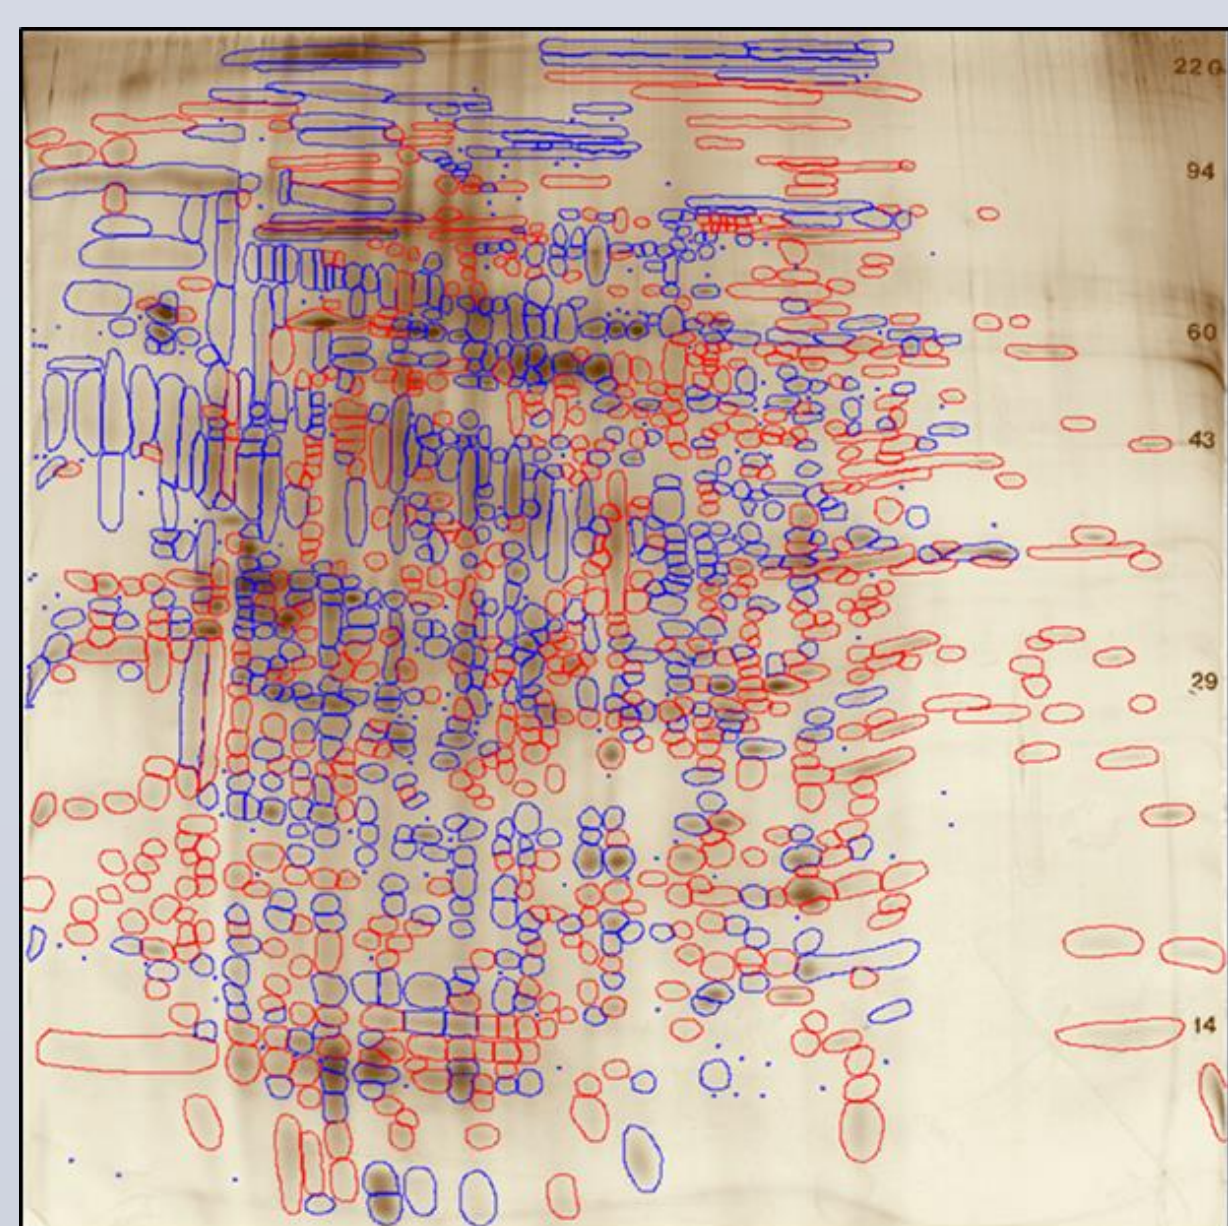 22
94
60
43
29
14